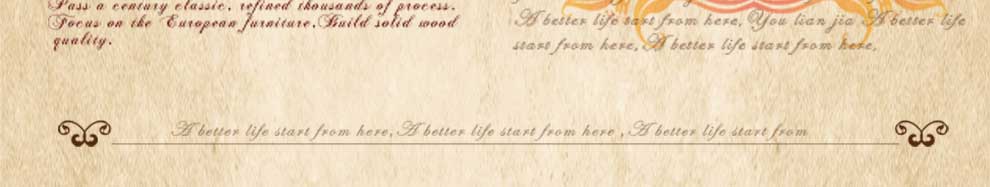 Pass a century classic, refined thousands of process.
Focus on the European furniture,Build solid wood
quality.
A better life start from here, You lian jia A better life
start from here, A better life start from here,
A better life start from here,A better life start from here , A better life start from